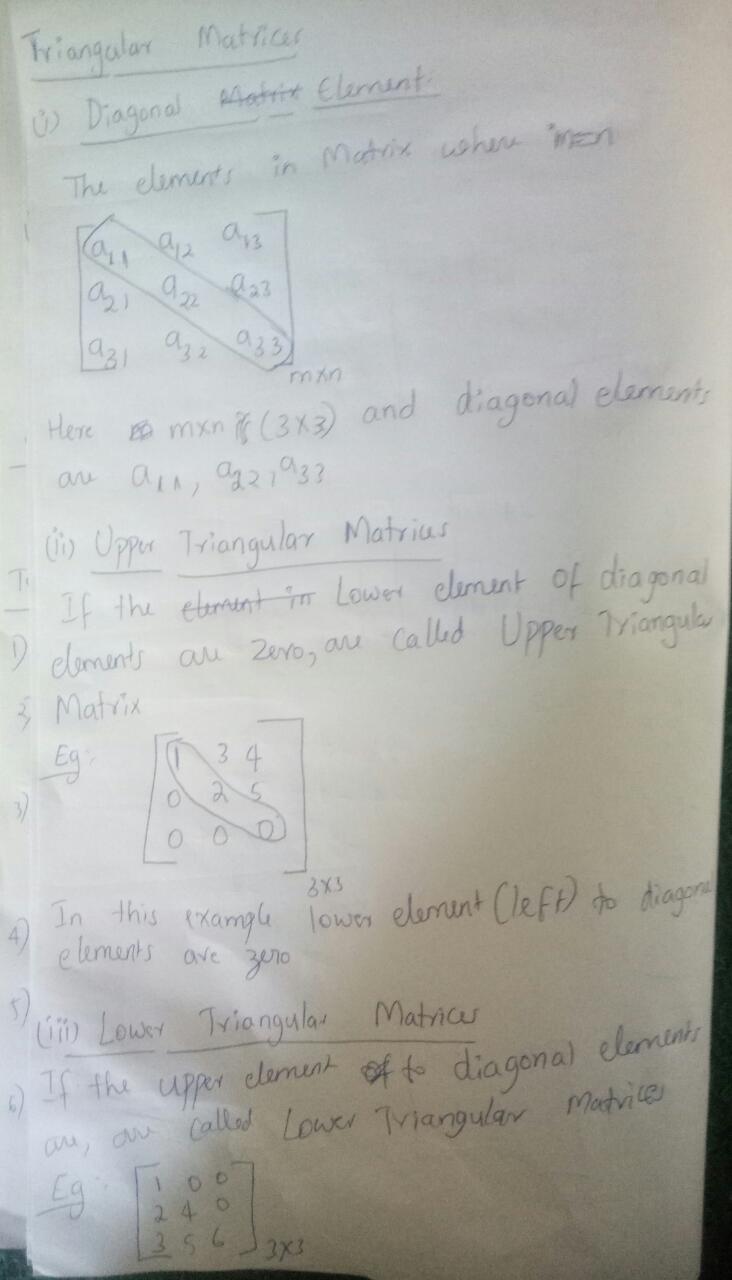 Triangular Matrices
(i) Diagonal Matrix Element.
The elements in Matrix where m=n
a11 a12 a13
a21 a22 a23
a31 a32 a33
mxn
Here mxn is (3x3) and diagonal elements
are a11, a22, a33
(ii) Upper Triangular Matrices
If the element in Lower element of diagonal
elements are zero, are called Upper Triangular
Matrix
Eg:
1 3 4
0 2 5
0 0 0
3x3
In this example lower element (left) to diagonal
elements are zero
(iii) Lower Triangular Matrices
If the upper element of to diagonal elements
are, are called Lower Triangular Matrices
Eg:
1 0 0
2 4 0
3 5 6
3x3
1)
3)
4)
5)
6)